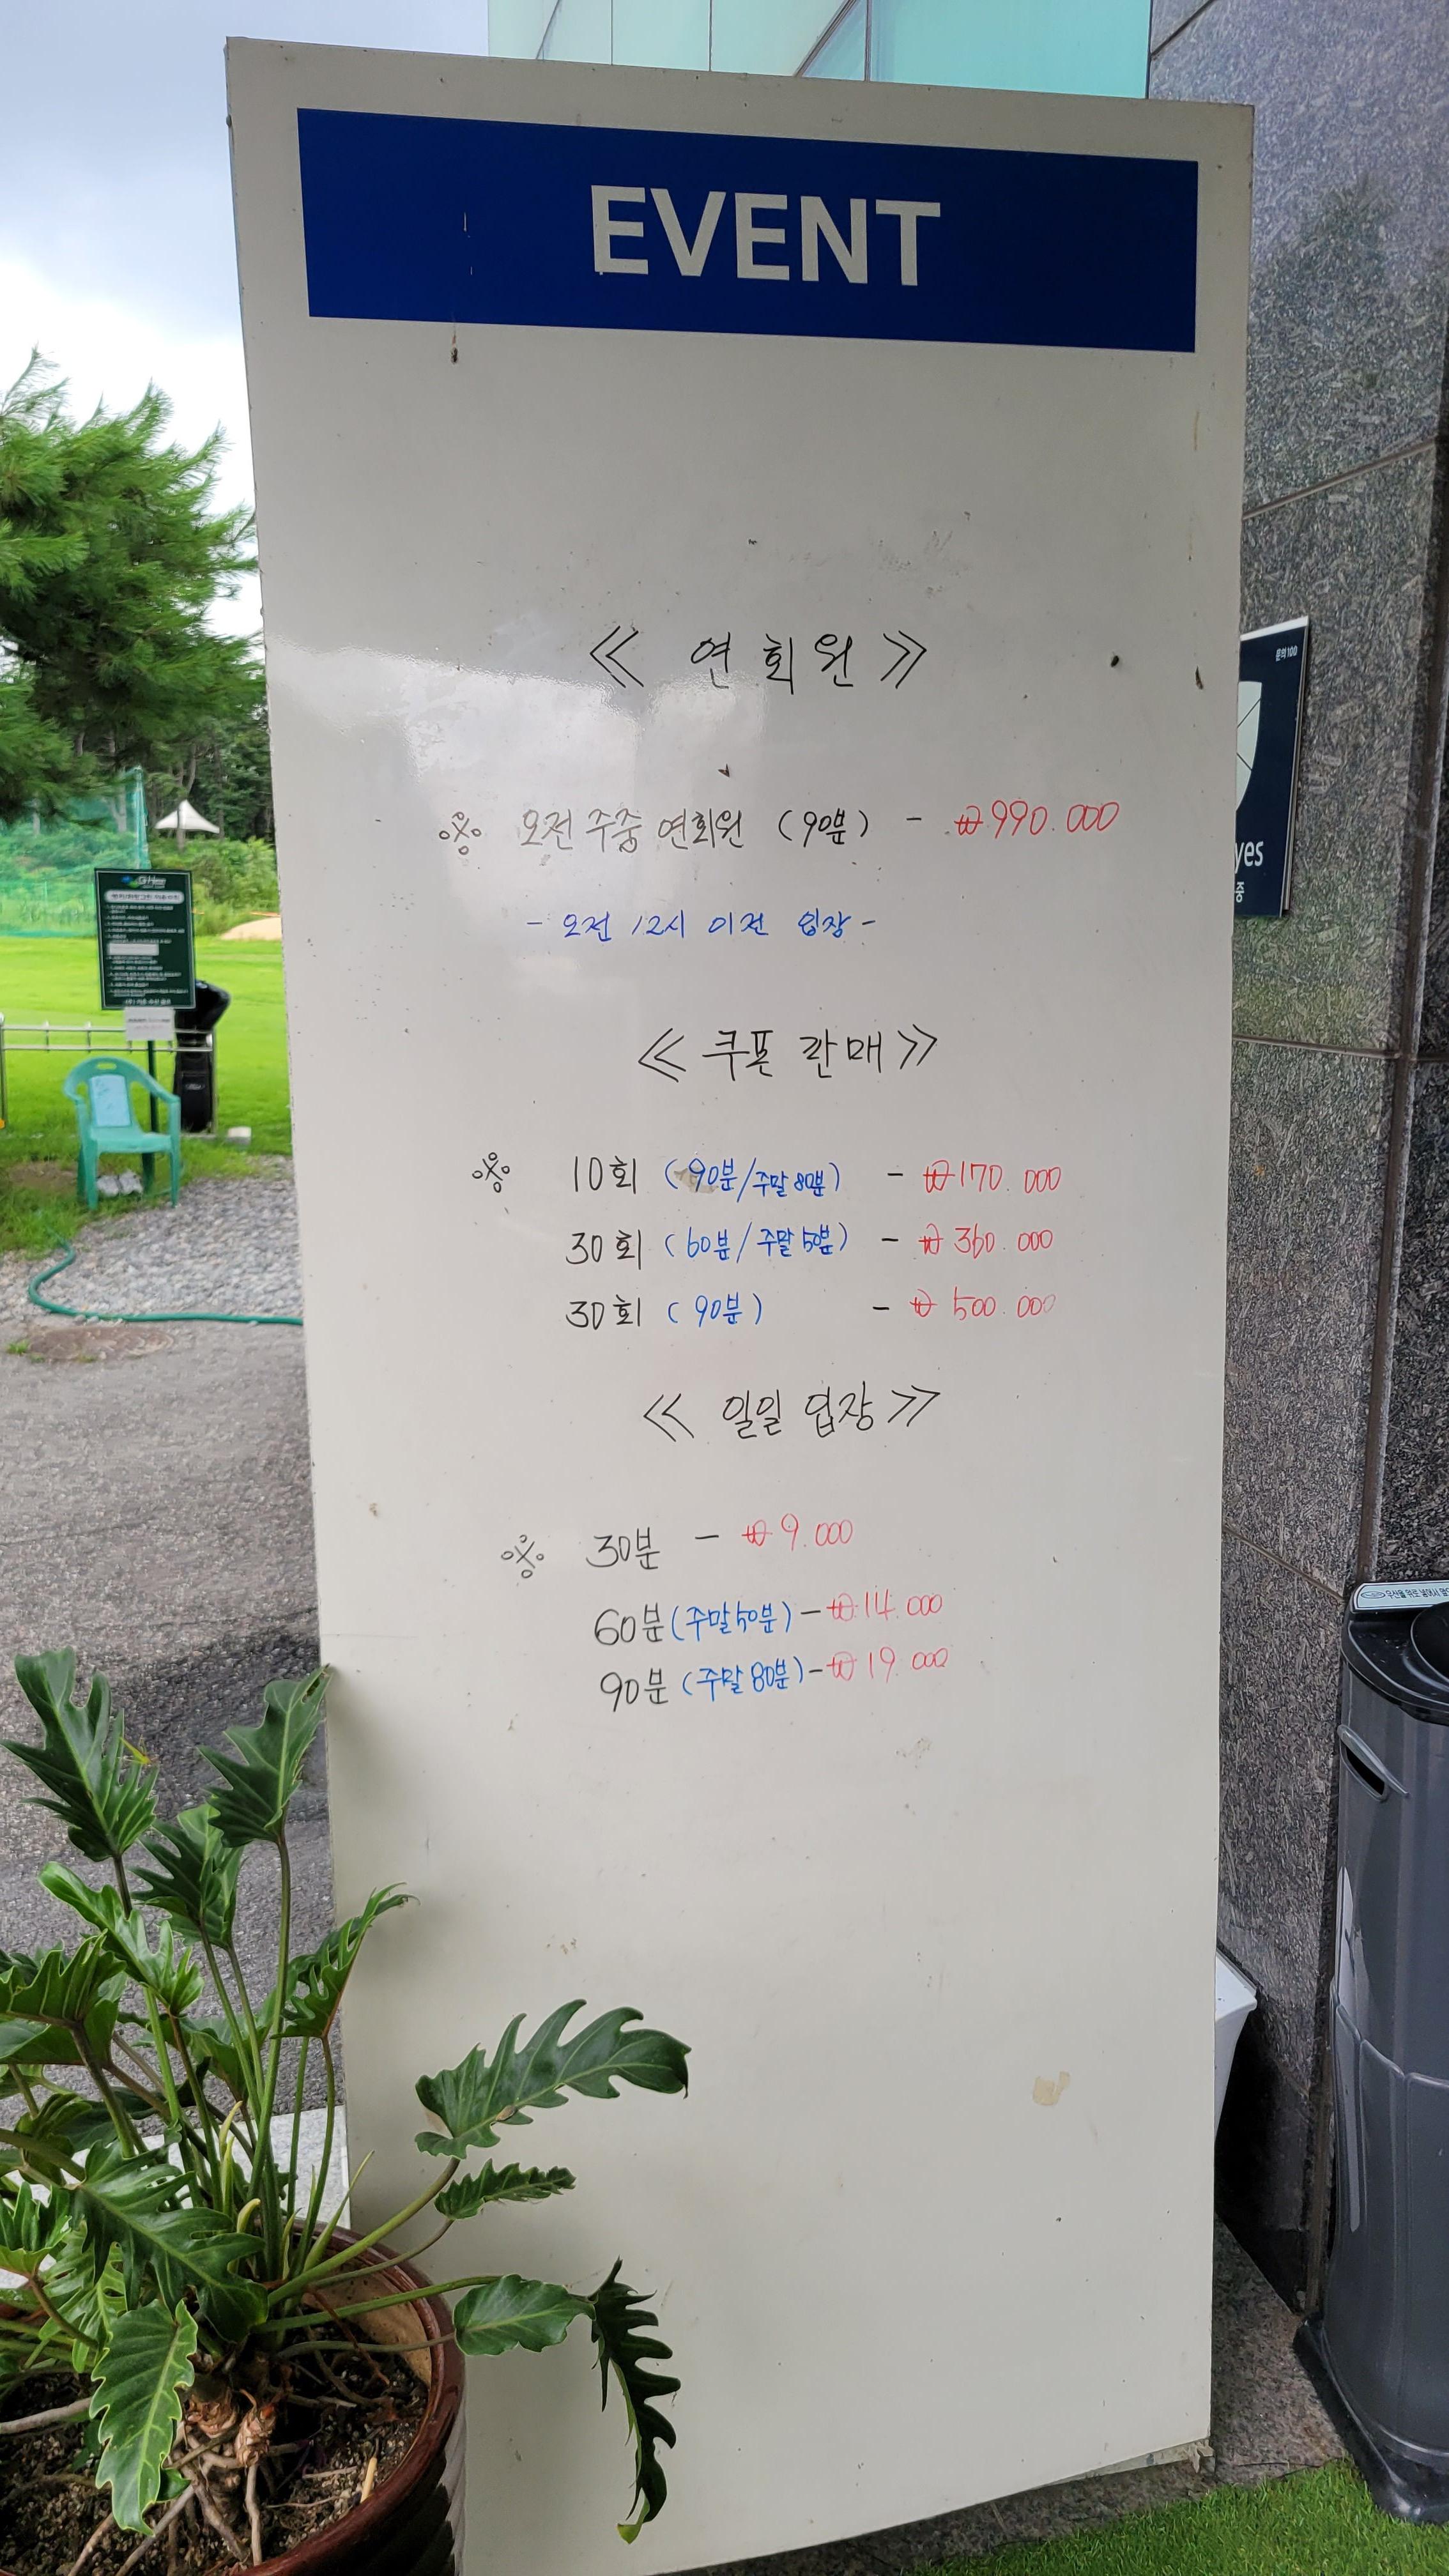 EVENT
≪ 연회원 ≫
※ 오전 주중 연회원 (90분) - ₩990.000
- 오전 12시 이전 입장 -
≪ 쿠폰 판매 ≫
※ 10회 (90분/주말 80분) - ₩170.000
30회 (60분/주말 50분) - ₩360.000
30회 (90분) - ₩500.000
≪ 일일 입장 ≫
※ 30분 - ₩9.000
60분 (주말 50분) - ₩14.000
90분 (주말 80분) - ₩19.000
문의100
yes
중